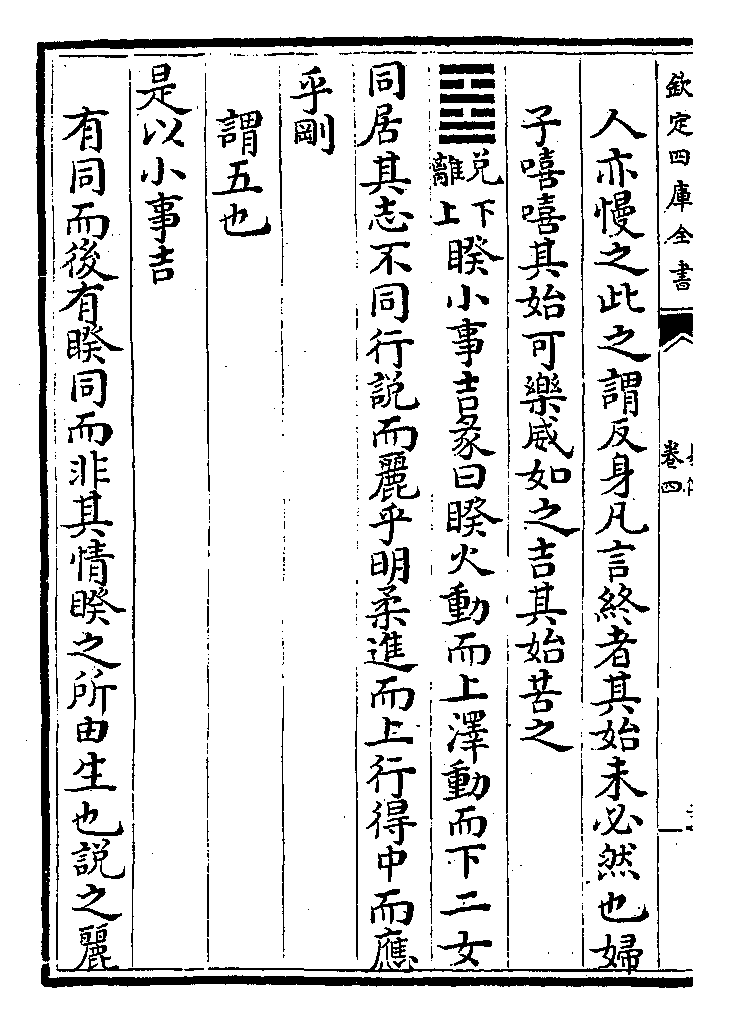 欽定四庫全書
卷四
人亦慢之此之謂反身凡言終者其始未必然也婦
子嘻嘻其始可樂威如之吉其始苦之
䷥兌下離上睽小事吉彖曰睽火動而上澤動而下二女
同居其志不同行說而麗乎明柔進而上行得中而應
乎剛
謂五也
是以小事吉
有同而後有睽同而非其情睽之所由生也說之麗